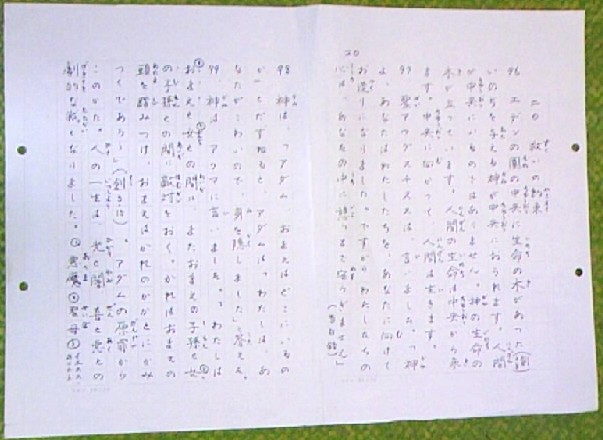 20
二〇 救いの約束
96 エデンの園の中央に生命の木があった(創)
いのちを与える神が中央におられます。人間
が中央にいるものではありません。神の生命の
木が立っています。人間の生命は中央から来
ます。中央に向かって人間は生きます。
97 聖アウグスチヌスは、言いました。「神
よ、あなたはわたしたちを、あなたに向けて
お造りになりました。ですからわたしたちの
心は、あなたの中に憩うまで安らぎません」
(告白録)
98 神は、「アダム、おまえはどこにいるの
か」とたずねると、アダムは「わたしは、あ
なたがこわいので、身を隠しました」と答えた。
99 神は、アダムに言いました。「わたしは
おまえと女との間に、またおまえの子孫と女
の子孫との間に敵対をおく。かれはおまえの
頭を踏みつけ、おまえはかれのかかとにかみ
つくであろう」(創3:15)。アダムの原罪から
このかた。人の一生は、光と闇、善と悪との
劇的な戦となりました。